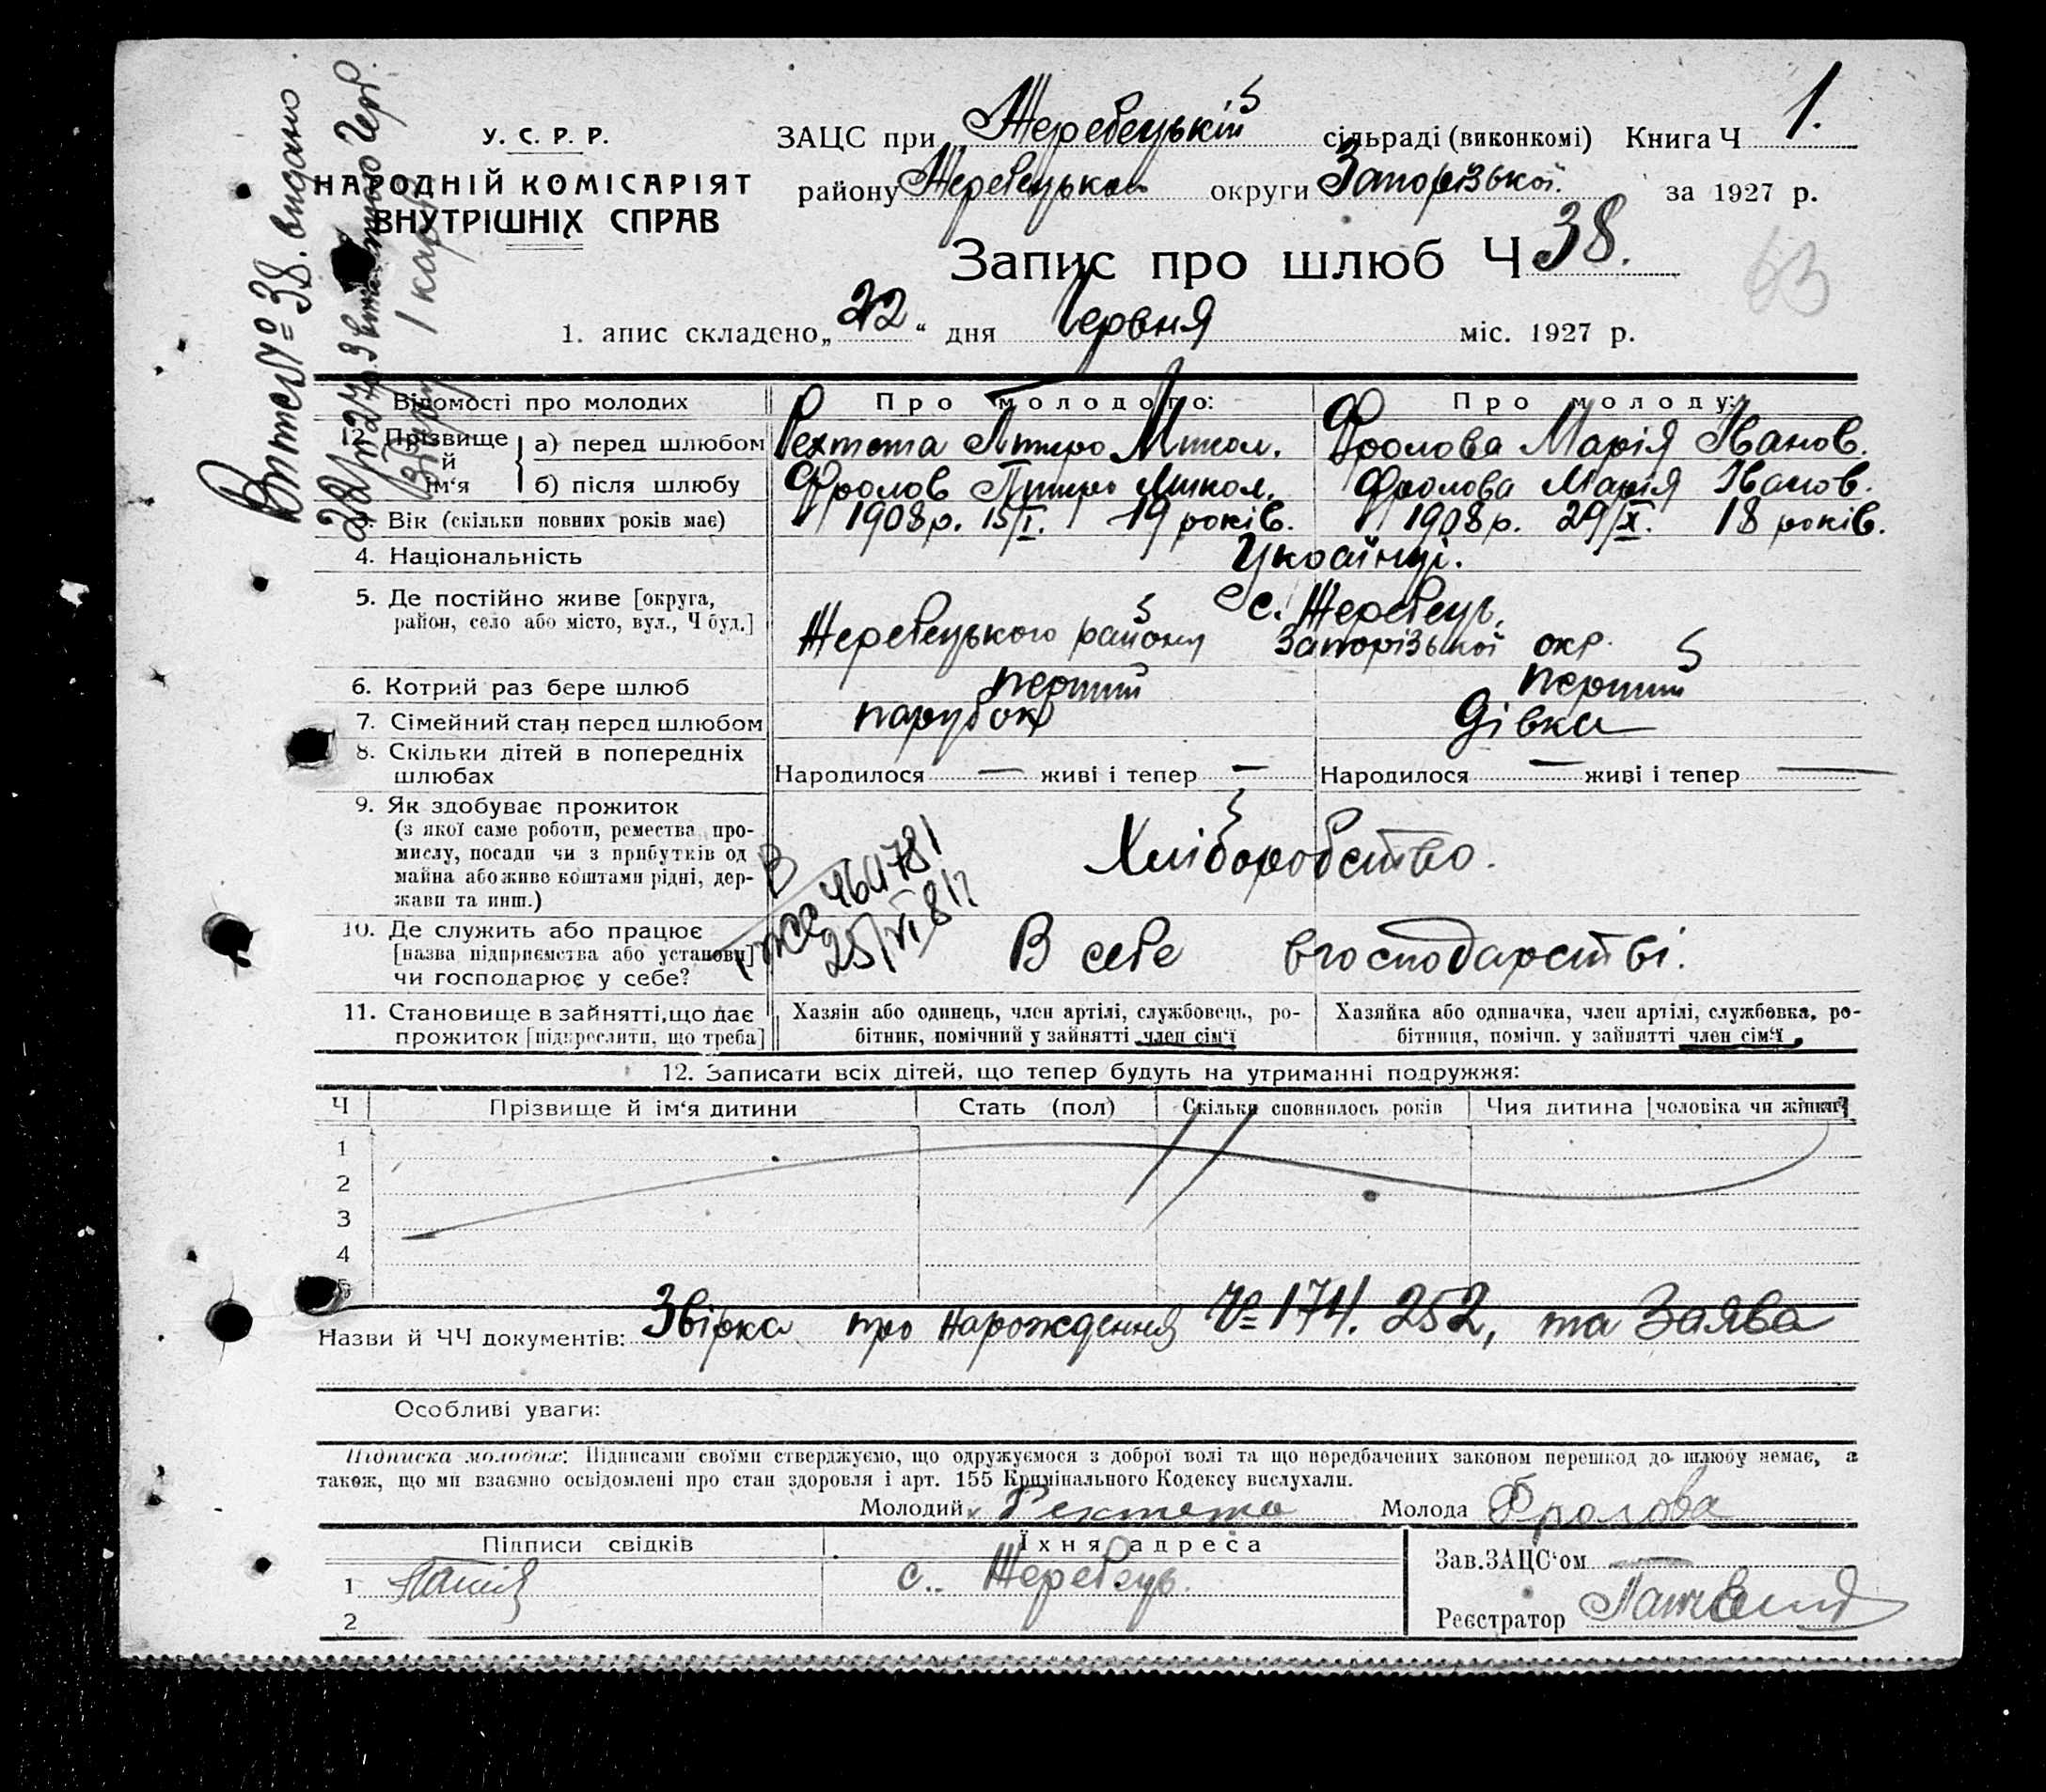 У. С. Р. Р.
НАРОДНІЙ КОМІСАРІЯТ
ВНУТРІШНІХ СПРАВ
ЗАЦС при Жеребецькій сільраді (виконкомі) Книга Ч 1.
району Жеребецького округи Запорізької. за 1927 р.
Запис про шлюб Ч 38.
63
1. апис складено „22“ дня Червня міс. 1927 р.
Витяг № 38. видано
1 карб
Відомості про молодих Про молодого: Про молоду:
12. Прізвище й ім‘я
а) перед шлюбом Рехтета Петро Микол. Фролова Марія Іванов.
б) після шлюбу Фролов Петро Микол. Фролова Марія Іванов.
3. Вік (скільки повних років має) 1908 р. 15/I. 19 років. 1908 р. 29/X. 18 років.
4. Національність Українці.
5. Де постійно живе [округа, с. Жеребець,
район, село або місто, вул., Ч буд.] Жеребецького району Запорізької окр.
6. Котрий раз бере шлюб перший перший
7. Сімейний стан перед шлюбом парубок дівка
8. Скільки дітей в попередніх
шлюбах Народилося — живі і тепер — Народилося — живі і тепер —
9. Як здобуває прожиток
(з якої саме роботи, ремества про-
мислу, посади чи з прибутків од Хліборобство.
майна або живе коштами рідні, дер-
жави та инш.)
464781
25/VI 81
10. Де служить або працює
[назва підприємства або установи] В себе вгосподарстві.
чи господарює у себе?
11. Становище в зайнятті, що дає
прожиток [підкреслити, що треба]
Хазяін або одинець, член артілі, службовець, ро-
бітник, помічний у зайнятті член сім‘ї
Хазяйка або одиначка, член артілі, службовка, ро-
бітниця, помічн. у зайнятті член сім‘ї
12. Записати всіх дітей, що тепер будуть на утриманні подружжя:
Ч Прізвище й ім‘я дитини Стать (пол) Скільки сповнилось років Чия дитина [чоловіка чи жінки]
1
2
3
4
5
Назви й ЧЧ документів: Звірка про нарождення № 174. 252, та Заява
Особливі уваги:
Підписка молодих: Підписами своїми стверджуємо, що одружуємося з доброї волі та що передбачених законом перешкод до шлюбу немає, а
також, що ми взаємно освідомлені про стан здоровля і арт. 155 Кримінального Кодексу вислухали.
Молодий Рехтета Молода Фролова
Підписи свідків Їхня адреса Зав.ЗАЦС‘ом —
1 с. Жеребець
2 Реєстратор